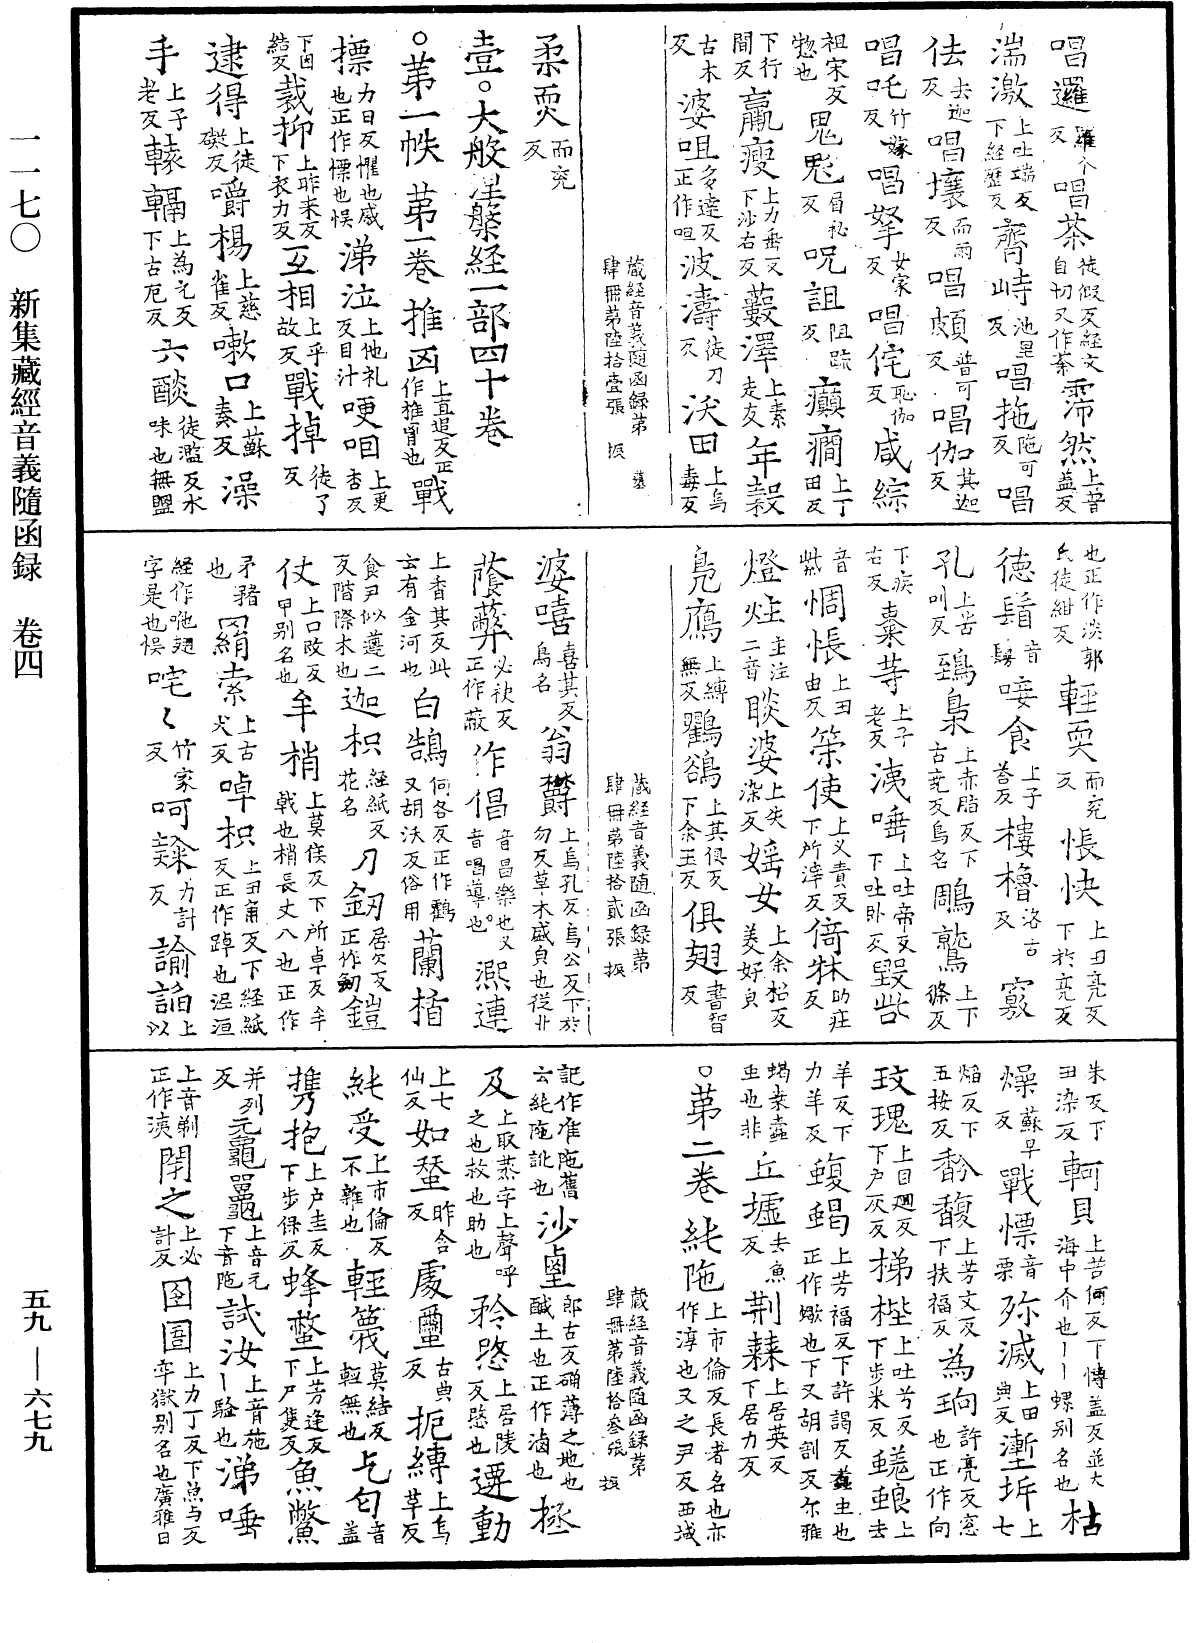 一一七〇　新集藏經音義隨函錄　卷四
五九——六七九
唱邏羅个反唱茶徒假反経文自切又作荼霈然上普盖反
湍激上吐端反下経歷反齊峙池里反唱拖陁可反唱
佉去迦反唱壤而兩反唱頗普可反唱伽其迦反
唱吒竹嫁反唱拏女家反唱侘恥伽反咸綜
祖宋反惣也鬼魅眉祕反呪詛阻䟽反癲癎上丁田反
下行間反羸瘦上力垂反下沙右反藪澤上素走反年穀
古木反婆呾多達反正作呾波濤徒刀反沃田上烏毒反
藏経音義随函録第肆冊第陸拾壹張　振　墓
柔耎而兖反
壹。大般涅槃経一部四十巻
。第一帙　第一巻　推凶上直追反正作椎𮌎也戰
摽力日反懼也慼也正作慓也悞涕泣上他礼反目汁哽咽上更杏反
下因結反裁抑上昨来反下衣力反互相上乎故反戰掉徒了反
逮得上徒礙反嚼楊上慈雀反嗽口上蘇奏反澡
手上子老反轅輻上為元反下古厄反六醶徒濫反水味也無鹽
也正作淡郭氏徒紺反軽耎而兖反悵怏上丑亮反下於亮反
德鬍音騎唼食上子荅反樓櫓洛古反竅
孔上苦叫反鵄梟上赤脂反下古尭反鳥名鵰鷲上下條反
下疾右反棗等上子老反洟唾上吐帝反下吐卧反毀呰
音紫惆悵上丑由反策使上义責反下所滓反倚牀助庄反
燈炷主注二音睒婆上失染反婬女上余招反美好皃
鳧鴈上縛無反鸜鵒上其俱反下余玉反俱翅書智反
藏経音義随函録第肆冊第陸拾貳張　振
婆嘻喜其反鳥名翁欝上烏孔反烏公反下於勿反草木盛皃也従艹
蔭蔽必袂反正作蔽作倡音昌樂也又音唱導也。熙連
上香其反此云有金河也白鵠何各反正作鶴又胡沃反俗用蘭㨋
食尹似遵二反階際木也迦枳経紙反花名刀釼居欠反正作劒鎧
仗上口改反甲别名也牟矟上莫侯反下所卓反牟戟也矟長丈八也正作
矛豬也羂索上古犬反啅枳上丑角反下経紙反正作踔也涅洹
経作吔翅字是也悞咤〻竹家反呵隸力計反諭詣上以
朱反下丑染反軻貝上苦何反下愽盖反並大海中介也丨丨螺别名也枯
燥蘇早反戰慄音栗殄滅上田典反壍坼上七
焰反下五按反馚馥上芳文反下扶福反為珦許亮反窓也正作向
玫瑰上目廻反下戸灰反梯桟上吐兮反下步米反蜣蜋上去
羊反下力羊反蝮蝎上芳福反下許謁反螫虫也正作蠍也下又胡割反尓雅
蝎桒蠹虫也非丘墟去魚反荆棘上居英反下居力反
。第二巻　純陁上市倫反長者名也亦作淳也又之尹反西域
藏経音義随函録第肆冊第陸拾叁張　振
記作准陁舊云純陁訛也沙鹵郎古反确薄之地也鹹土也正作滷也拯
及上取蒸字上聲呼之也救也助也矜愍上居陵反愍也遷動
上七仙反如蚕昨含反處䘉古典反扼縛上烏草反
純受上市倫反不雜也軽篾莫結反軽無也乞匂音盖
攜抱上戸圭反下步保反蜂螫上芳逢反下尸隻反魚鱉
并列反黿鼉上音元下音陁試汝上音施丨驗也涕唾
上音剃正作洟閇之上必計反囹圄上力丁反下魚与反牢獄别名也廣雅曰